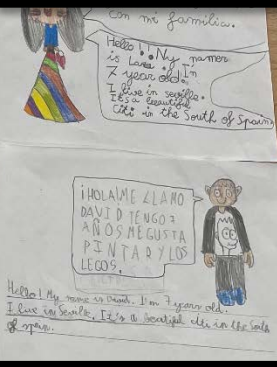 con mi familia.
Hello! My namer
is Lara I'm
7 year old.
I live in seville.
It's a beautiful
citi in the South of Spain
¡HOLA! ME LLAMO
DAVID TENGO 7
AÑOS ME GUSTA
PINTAR Y LOS
LEGOS.
Hello! My name is David. I'm 7 years old.
I live in Seville. It's a beatiful citi in the South
of spain.